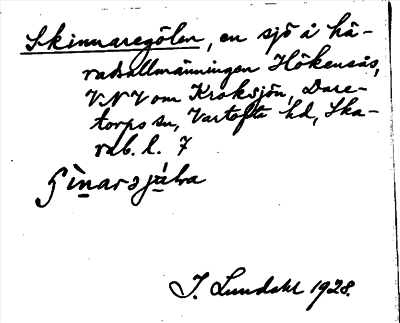 Skinnaregölen, en sjö å hä-
radsallmänningen Hökensås,
VNV om Kroksjön, Dare-
torps sn, Vartofta hd, Ska-
rab. l. 7
J. Lundahl 1928.